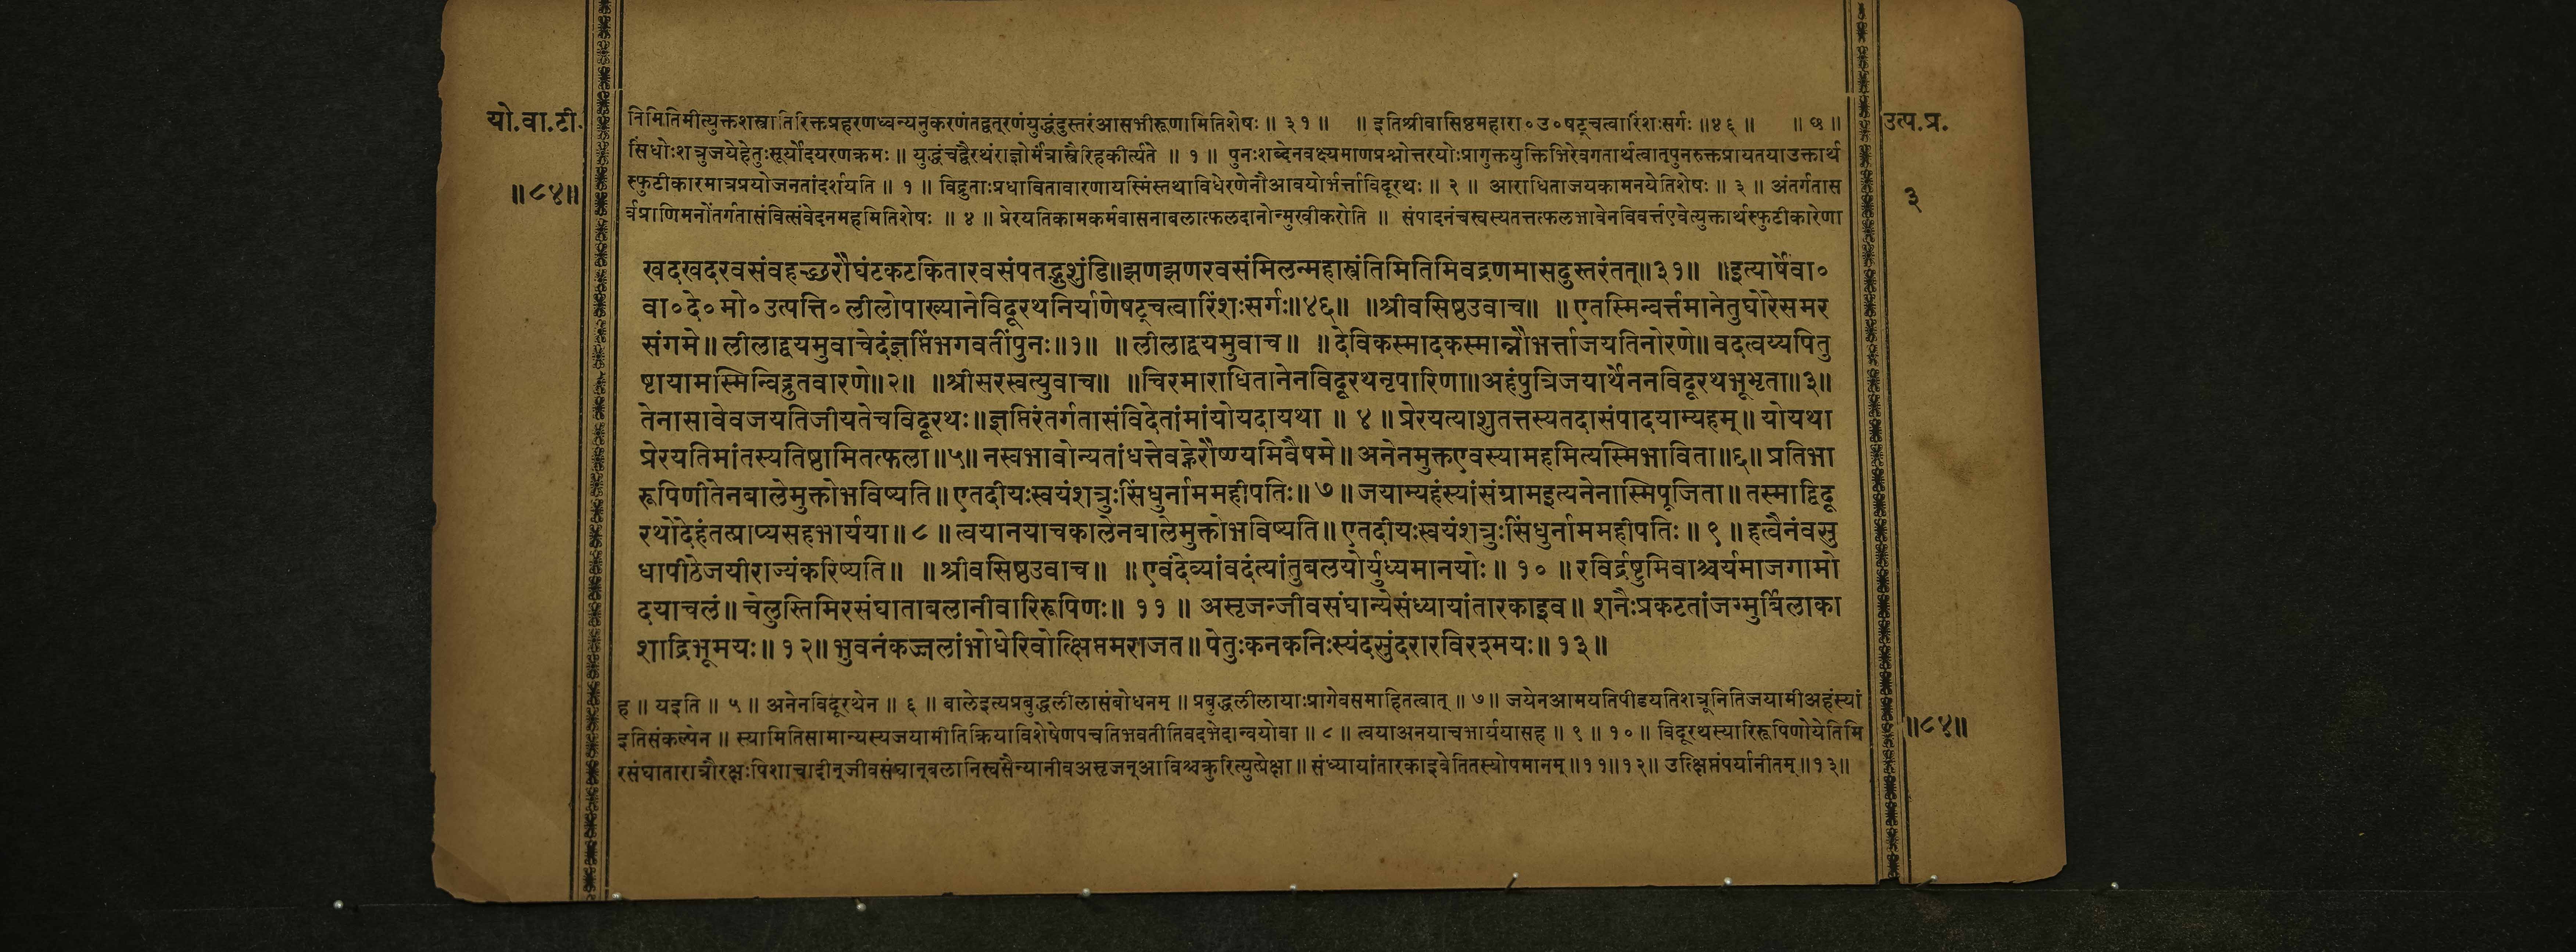 यो.वा.टी.
॥८४॥
निमितिमीत्युक्तशस्त्रातिरिक्तप्रहरणध्वन्यनुकरणंतद्वत्‌रणंयुद्धंदुस्तरंआसभीरूणामितिशेषः ॥ ३१ ॥ ॥ इतिश्रीवासिष्ठमहारा०उ०षट्चत्वारिंशःसर्गः ॥४६ ॥ ॥ छ ॥
सिंधोःशत्रुजयेहेतुःसूर्योदयरणक्रमः ॥ युद्धंचद्वैरथंराज्ञोर्मंत्रास्त्रैरिहकीर्त्यते ॥ १ ॥ पुनःशब्देनवक्ष्यमाणप्रश्नोत्तरयोःप्रागुक्तयुक्तिभिरेवगतार्थत्वात्‌पुनरुक्तप्रायतयाउक्तार्थ
स्फुटीकारमात्रप्रयोजनतांदर्शयति ॥ १ ॥ विद्रुताःप्रधावितावारणायस्मिंस्तथाविधेरणेनौआवयोर्भर्त्ताविदूरथः ॥ २ ॥ आराधिताजयकामनयेतिशेषः ॥ ३ ॥ अंतर्गतास
र्वप्राणिमनोंतर्गतासंवित्संवेदनमहमितिशेषः ॥ ४ ॥ प्रेरयतिकामकर्मवासनाबलात्फलदानोन्मुखीकरोति ॥ संपादनंचस्वस्यतत्तत्फलभावेनविवर्त्तएवेत्युक्तार्थस्फुटीकारेणा
खदखदरवसंवहच्छरौघंटकटकितारवसंपतद्भुशुंडि॥झणझणरवसंमिलन्महास्त्रंतिमितिमिवद्रणमासदुस्तरंतत्॥३१॥ ॥इत्यार्षेवा०
वा०दे०मो०उत्पत्ति०लीलोपाख्यानेविदूरथनिर्याणेषट्चत्वारिंशःसर्गः॥४६॥ ॥श्रीवसिष्ठउवाच॥ ॥एतस्मिन्वर्त्तमानेतुघोरेसमर
संगमे॥ लीलाद्वयमुवाचेदंज्ञप्तिंभगवतींपुनः॥१॥ ॥लीलाद्वयमुवाच॥ ॥देविकस्मादकस्मान्नौभर्त्ताजयतिनोरणे॥ वदत्वय्यपितु
ष्टायामस्मिन्विद्रुतवारणे॥२॥ ॥श्रीसरस्वत्युवाच॥ ॥चिरमाराधितानेनविदूरथनृपारिणा॥अहंपुत्रिजयार्थेननविदूरथभूभृता॥३॥
तेनासावेवजयतिजीयतेचविदूरथः॥ज्ञप्तिरंतर्गतासंविदेतांमांयोयदायथा ॥ ४ ॥ प्रेरयत्याशुतत्तस्यतदासंपादयाम्यहम्॥ योयथा
प्रेरयतिमांतस्यतिष्ठामितत्फला॥५॥ नस्वभावोन्यतांधत्तेवह्नेरौष्ण्यमिवैषमे॥ अनेनमुक्तएवस्यामहमित्यस्मिभाविता॥६॥ प्रतिभा
रूपिणीतेनबालेमुक्तोभविष्यति॥ एतदीयःस्वयंशत्रुःसिंधुर्नाममहीपतिः॥ ७ ॥ जयाम्यहंस्यांसंग्रामइत्यनेनास्मिपूजिता॥ तस्माद्विदू
रथोदेहंतत्प्राप्यसहभार्यया॥ ८ ॥ त्वयानयाचकालेनबालेमुक्तोभविष्यति॥ एतदीयःस्वयंशत्रुःसिंधुर्नाममहीपतिः ॥ ९ ॥ हत्वैनंवसु
धापीठेजयीराज्यंकरिष्यति॥ ॥श्रीवसिष्ठउवाच॥ ॥एवंदेव्यांवदंत्यांतुबलयोर्युध्यमानयोः॥ १० ॥ रविर्द्रष्टुमिवाश्चर्यमाजगामो
दयाचलं॥ चेलुस्तिमिरसंघाताबलानीवारिरूपिणः॥ ११ ॥ असृजन्जीवसंघान्येसंध्यायांतारकाइव॥ शनैःप्रकटतांजग्मुर्बिलाका
शाद्रिभूमयः॥१२॥ भुवनंकज्जलांभोधेरिवोत्क्षिप्तमराजत॥ पेतुःकनकनिःस्यंदसुंदरारविरश्मयः॥ १३॥
ह ॥ यइति ॥ ५ ॥ अनेनविदूरथेन ॥ ६ ॥ बालेइत्यप्रबुद्धलीलासंबोधनम् ॥ प्रबुद्धलीलायाःप्रागेवसमाहितत्वात् ॥ ७॥ जयेनआमयतिपीडयतिशत्रूनितिजयामीअहंस्यां
इतिसंकल्पेन ॥ स्यामितिसामान्यस्यजयामीतिक्रियाविशेषेणपचतिभवतीतिवदभेदान्वयोवा ॥ ८ ॥ त्वयाअनयाचभार्ययासह ॥ ९ ॥ १० ॥ विदूरथस्यारिरूपिणोयेतिमि
रसंघातारात्रौरक्षःपिशाचादीन्‌जीवसंघान्‌बलानिस्वसैन्यानीवअसृजन्‌आविश्चक्रुरित्युत्प्रेक्षा॥ संध्यायांतारकाइवेतितस्योपमानम्॥११॥१२॥ उत्क्षिप्तंपर्यानीतम्॥१३॥
उत्प.प्र.
३
॥८४॥